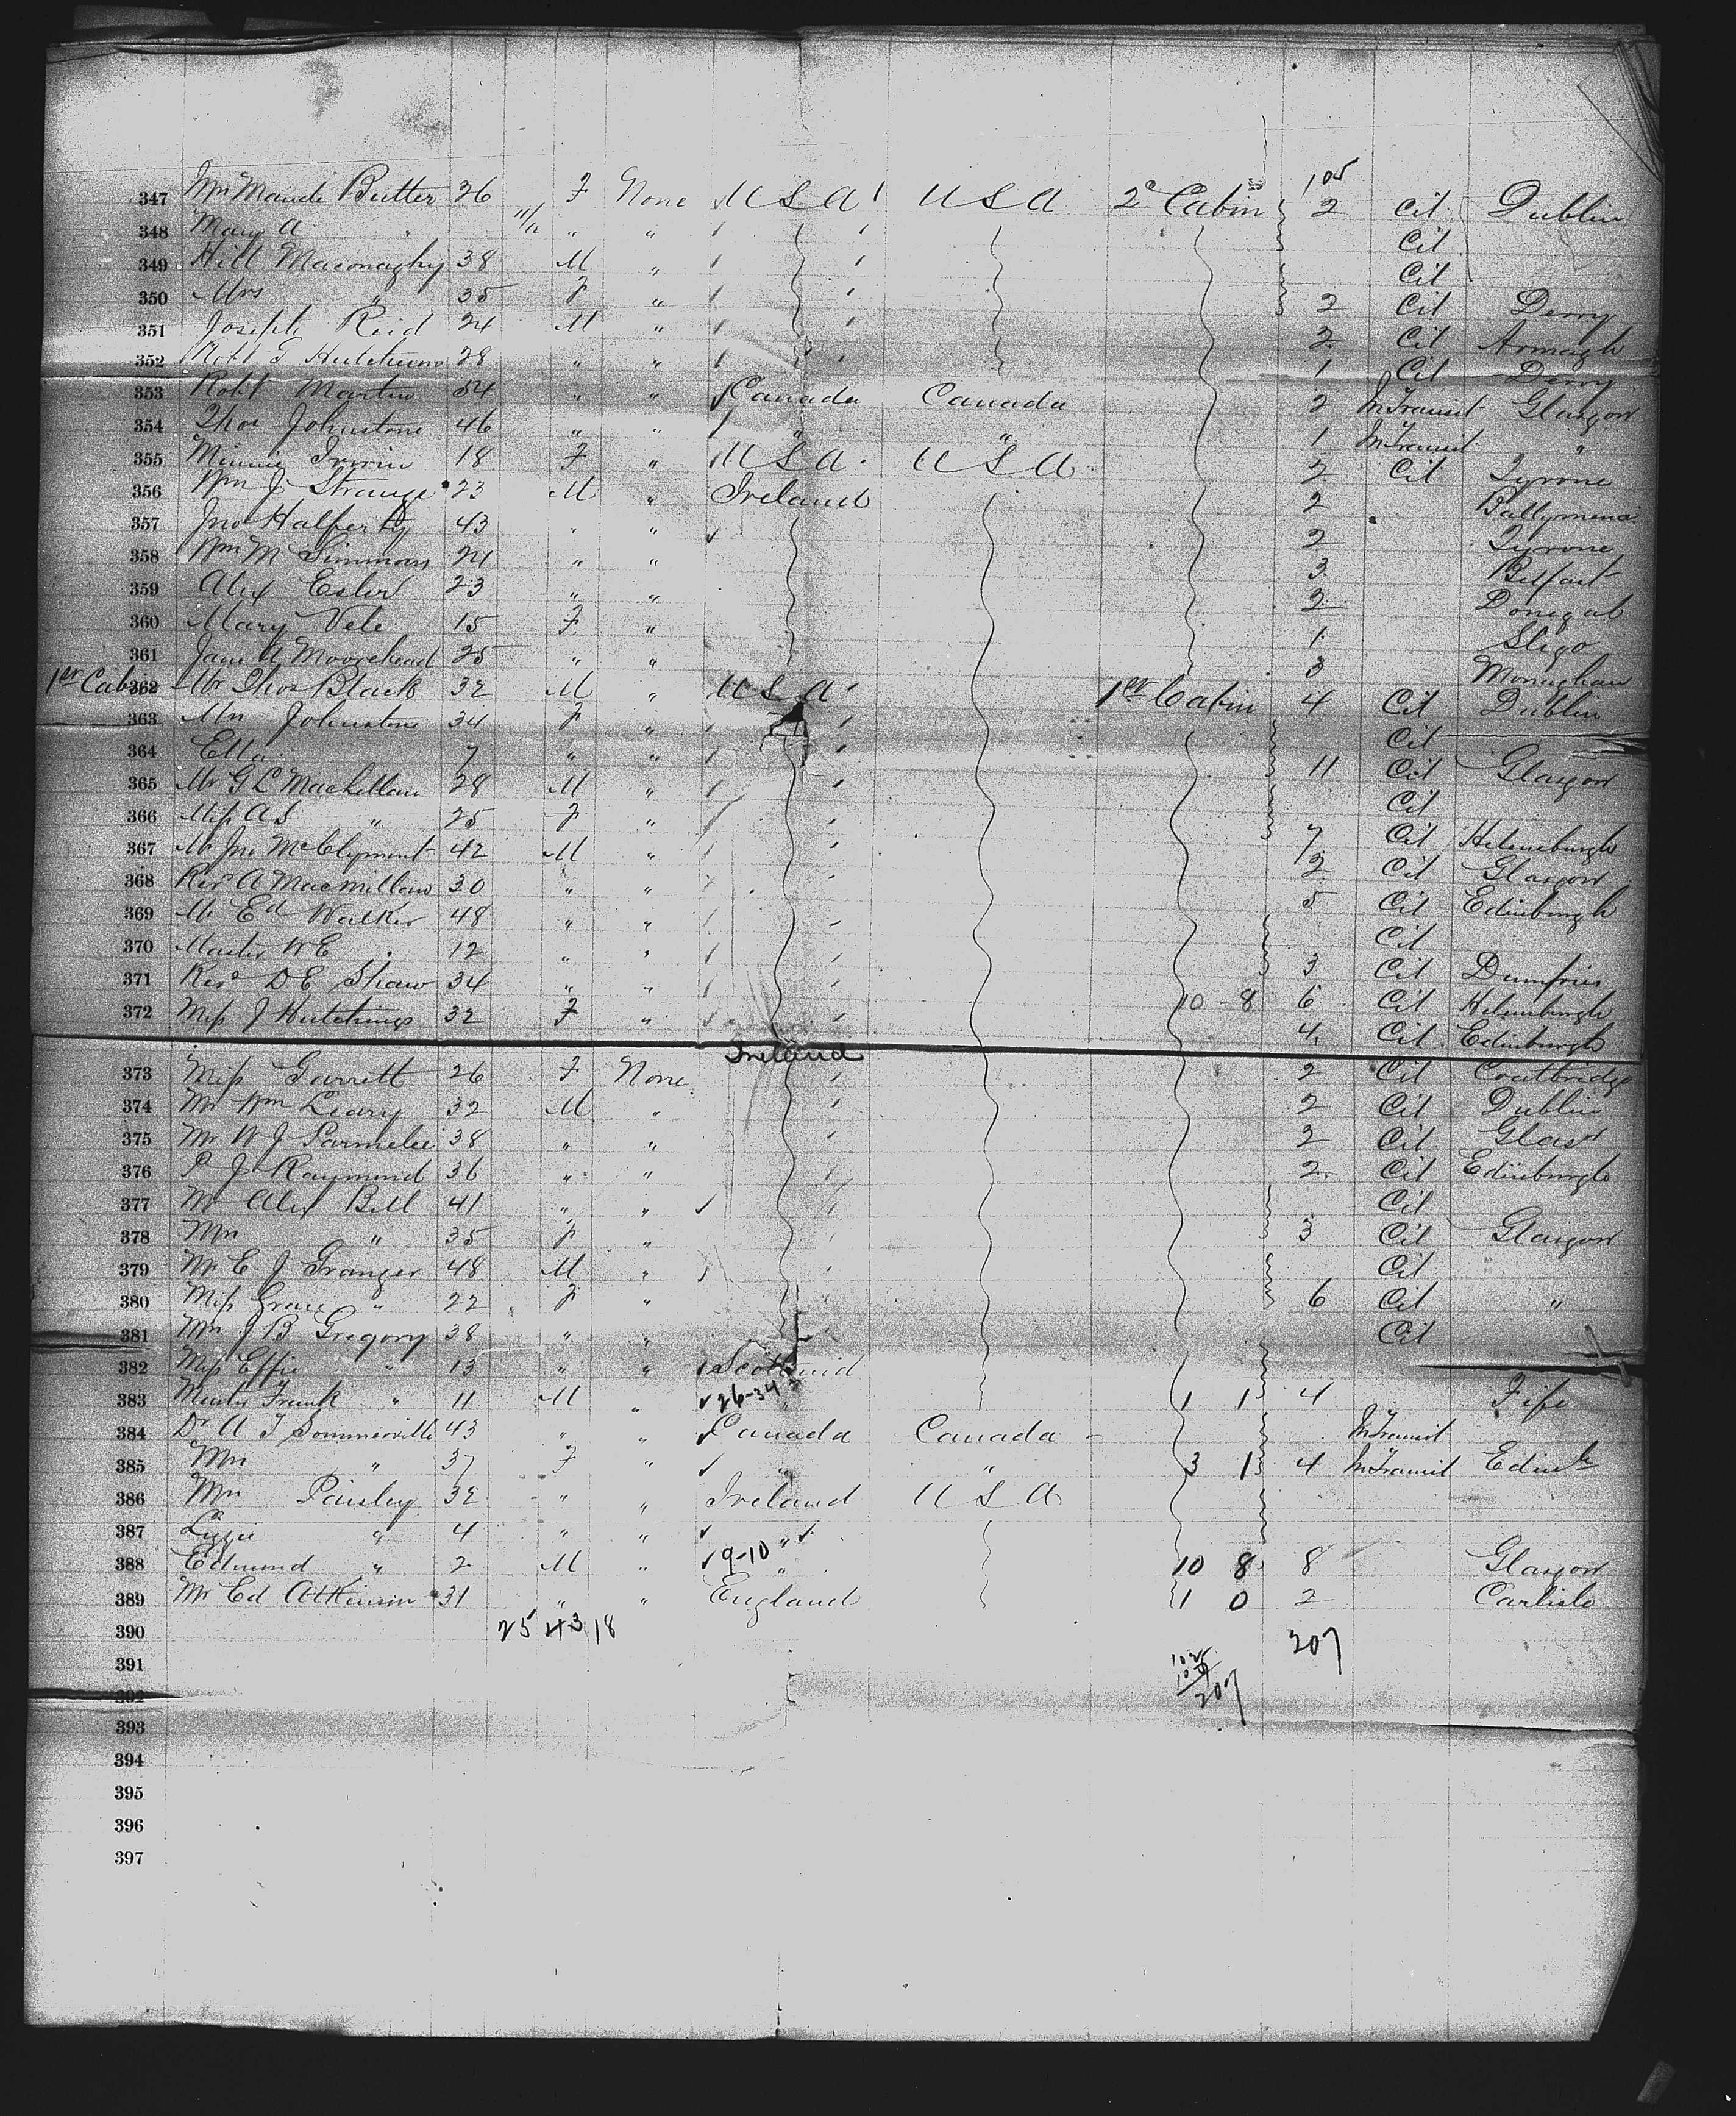 105
347 Mrs Maude Butter 26 F None USA USA 2d Cabin 2 Cit Dublin
348 Mary A " 11/12 " " Cit
349 Hill Maconaghy 38 M " Cit
350 Mrs " 35 F " 2 Cit Derry
351 Joseph Reid 24 M " 2 Cit Armagh
352 Robt G Hutchison 28 " " 1 Cit Derry
353 Robt Martin 54 " " Canada Canada 2 In Transit Glasgow
354 Thos Johnstone 46 " " " " 1 In Transit "
355 Minnie Irwin 18 F " USA USA 2 Cit Tyrone
356 Wm J Strange 23 M " Ireland 2 Ballymena
357 Jno Halferty 43 " " 2 Tyrone
358 Wm M Simmons 24 " " 3 Belfast
359 Alex Esler 23 " " 2 Donegal
360 Mary Vele 15 F " 1 Sligo
361 Jane A Moorehead 25 " " 3 Monaghan
1st Cabin 362 Mr Thos Black 32 M " USA 1st Cabin 4 Cit Dublin
363 Mrs Johnstone 34 F " Cit
364 Ella " 7 " " 11 Cit Glasgow
365 Mr G L MacLellan 28 M " Cit
366 Miss A S " 25 F " 7 Cit Helensburgh
367 Mr Jno McClymont 42 M " 2 Cit Glasgow
368 Rev A Macmillan 30 " " 5 Cit Edinburgh
369 Mr Ed Walker 48 " " Cit
370 Master W E " 12 " " 3 Cit Dumfries
371 Rev D E Shaw 34 " " 10 - 8 6 Cit Helensburgh
372 Miss J Hutchings 32 F " 4 Cit Edinburgh
Ireland
373 Miss Garrett 26 F None 2 Cit Coatbridge
374 Mr Wm Leary 32 M " 2 Cit Dublin
375 Mr W J Parmelee 38 " " 2 Cit Glasw
376 P J Raymond 36 " " 2 Cit Edinburgh
377 Mr Alex Bell 41 " " Cit
378 Mrs " 35 F " 3 Cit Glasgow
379 Mr E J Granger 48 M " Cit
380 Miss Grace " 22 F " 6 Cit "
381 Mrs J B Gregory 38 " " Cit
382 Miss Effie " 13 " " Scotland
383 Master Frank " 11 M " 26-34 1 1 4 Fife
384 Dr A T Sommerville 43 " " Canada Canada In Transit
385 Mrs " 37 F " " " 3 1 4 In Transit Edinh
386 Mrs Paisley 32 " " Ireland USA
387 Lizzie " 4 " " "
388 Edmund " 2 M " 9-10 " 10 8 8 Glasgow
389 Mr Ed Atkinson 31 " " England 1 0 2 Carlisle
390 25 43 18 207
391 102
392 207
393
394
395
396
397